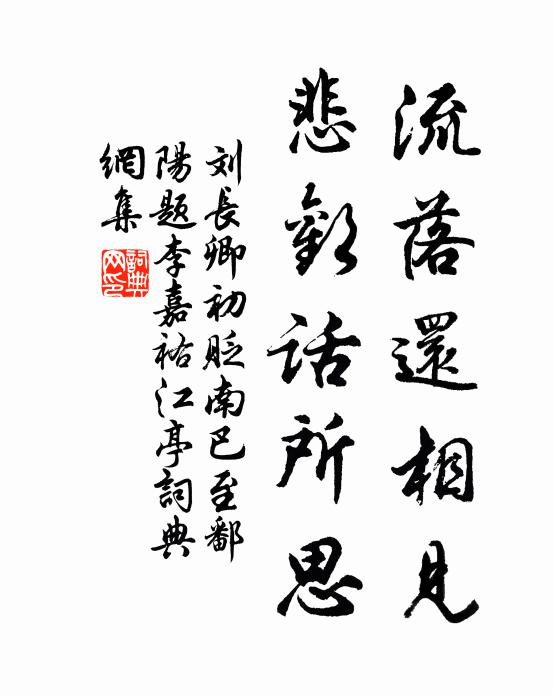 流落還相見
悲歡話所思
刘長卿初貶南巴至鄱
陽題李嘉祐江亭詞典
網集
詞典网印